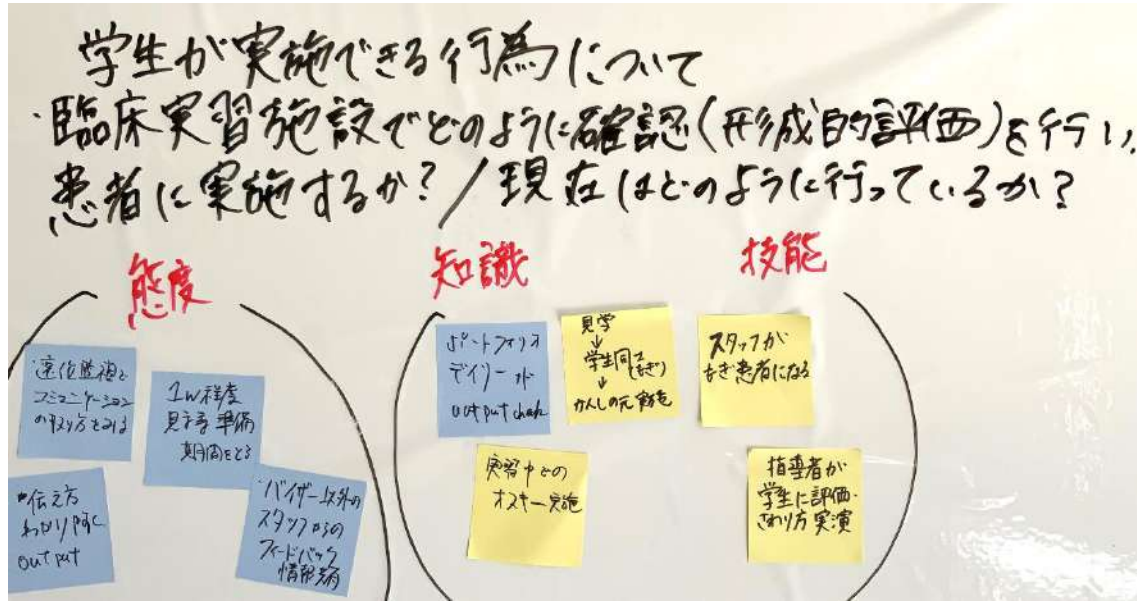 学生が実施できる行為について
・臨床実習施設でどのように確認(形成的評価)を行い、
患者に実施するか?/現在はどのように行っているか?
態度
知識
技能
・遠位監視で
コミュニケーション
の取り方をみる
1w程度
見学・準備
期間をとる
・伝え方
わかりやすく
output
・バイザー以外の
スタッフからの
フィードバック
情報共有
ポートフォリオ
デイリー
output
見学
↓
学生同士
(もぎ)
↓
かんしの元 実施
実習中での
オスキー実施
スタッフが
もぎ患者になる
指導者が
学生に評価・
さわり方 実演